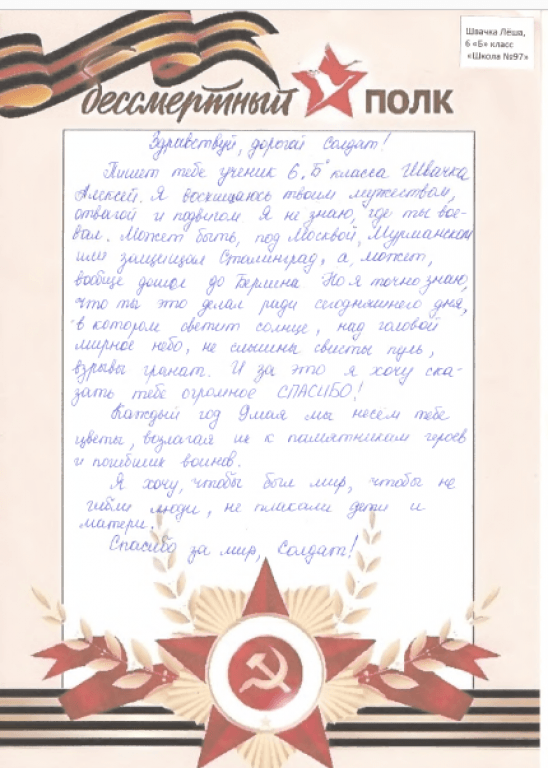 Швачка Лёша,
6 «Б» класс
«Школа №97»
бессмертный ПОЛК
Здравствуй, дорогой Солдат!
Пишет тебе ученик 6 „Б" класса Швачка
Алексей. Я восхищаюсь твоим мужеством,
отвагой и подвигом. Я не знаю, где ты вое-
вал. Может быть, под Москвой, Мурманском
или защищал Сталинград, а, может,
вообще дошел до Берлина. Но я точно знаю,
что ты это делал ради сегодняшнего дня,
в котором светит солнце, над головой
мирное небо, не слышны свисты пуль,
взрывы гранат. И за это я хочу ска-
зать тебе огромное СПАСИБО!
Каждый год 9 мая мы несём тебе
цветы, возлагая их к памятникам героев
и погибших воинов.
Я хочу, чтобы был мир, чтобы не
гибли люди, не плакали дети и
матери.
Спасибо за мир, Солдат!